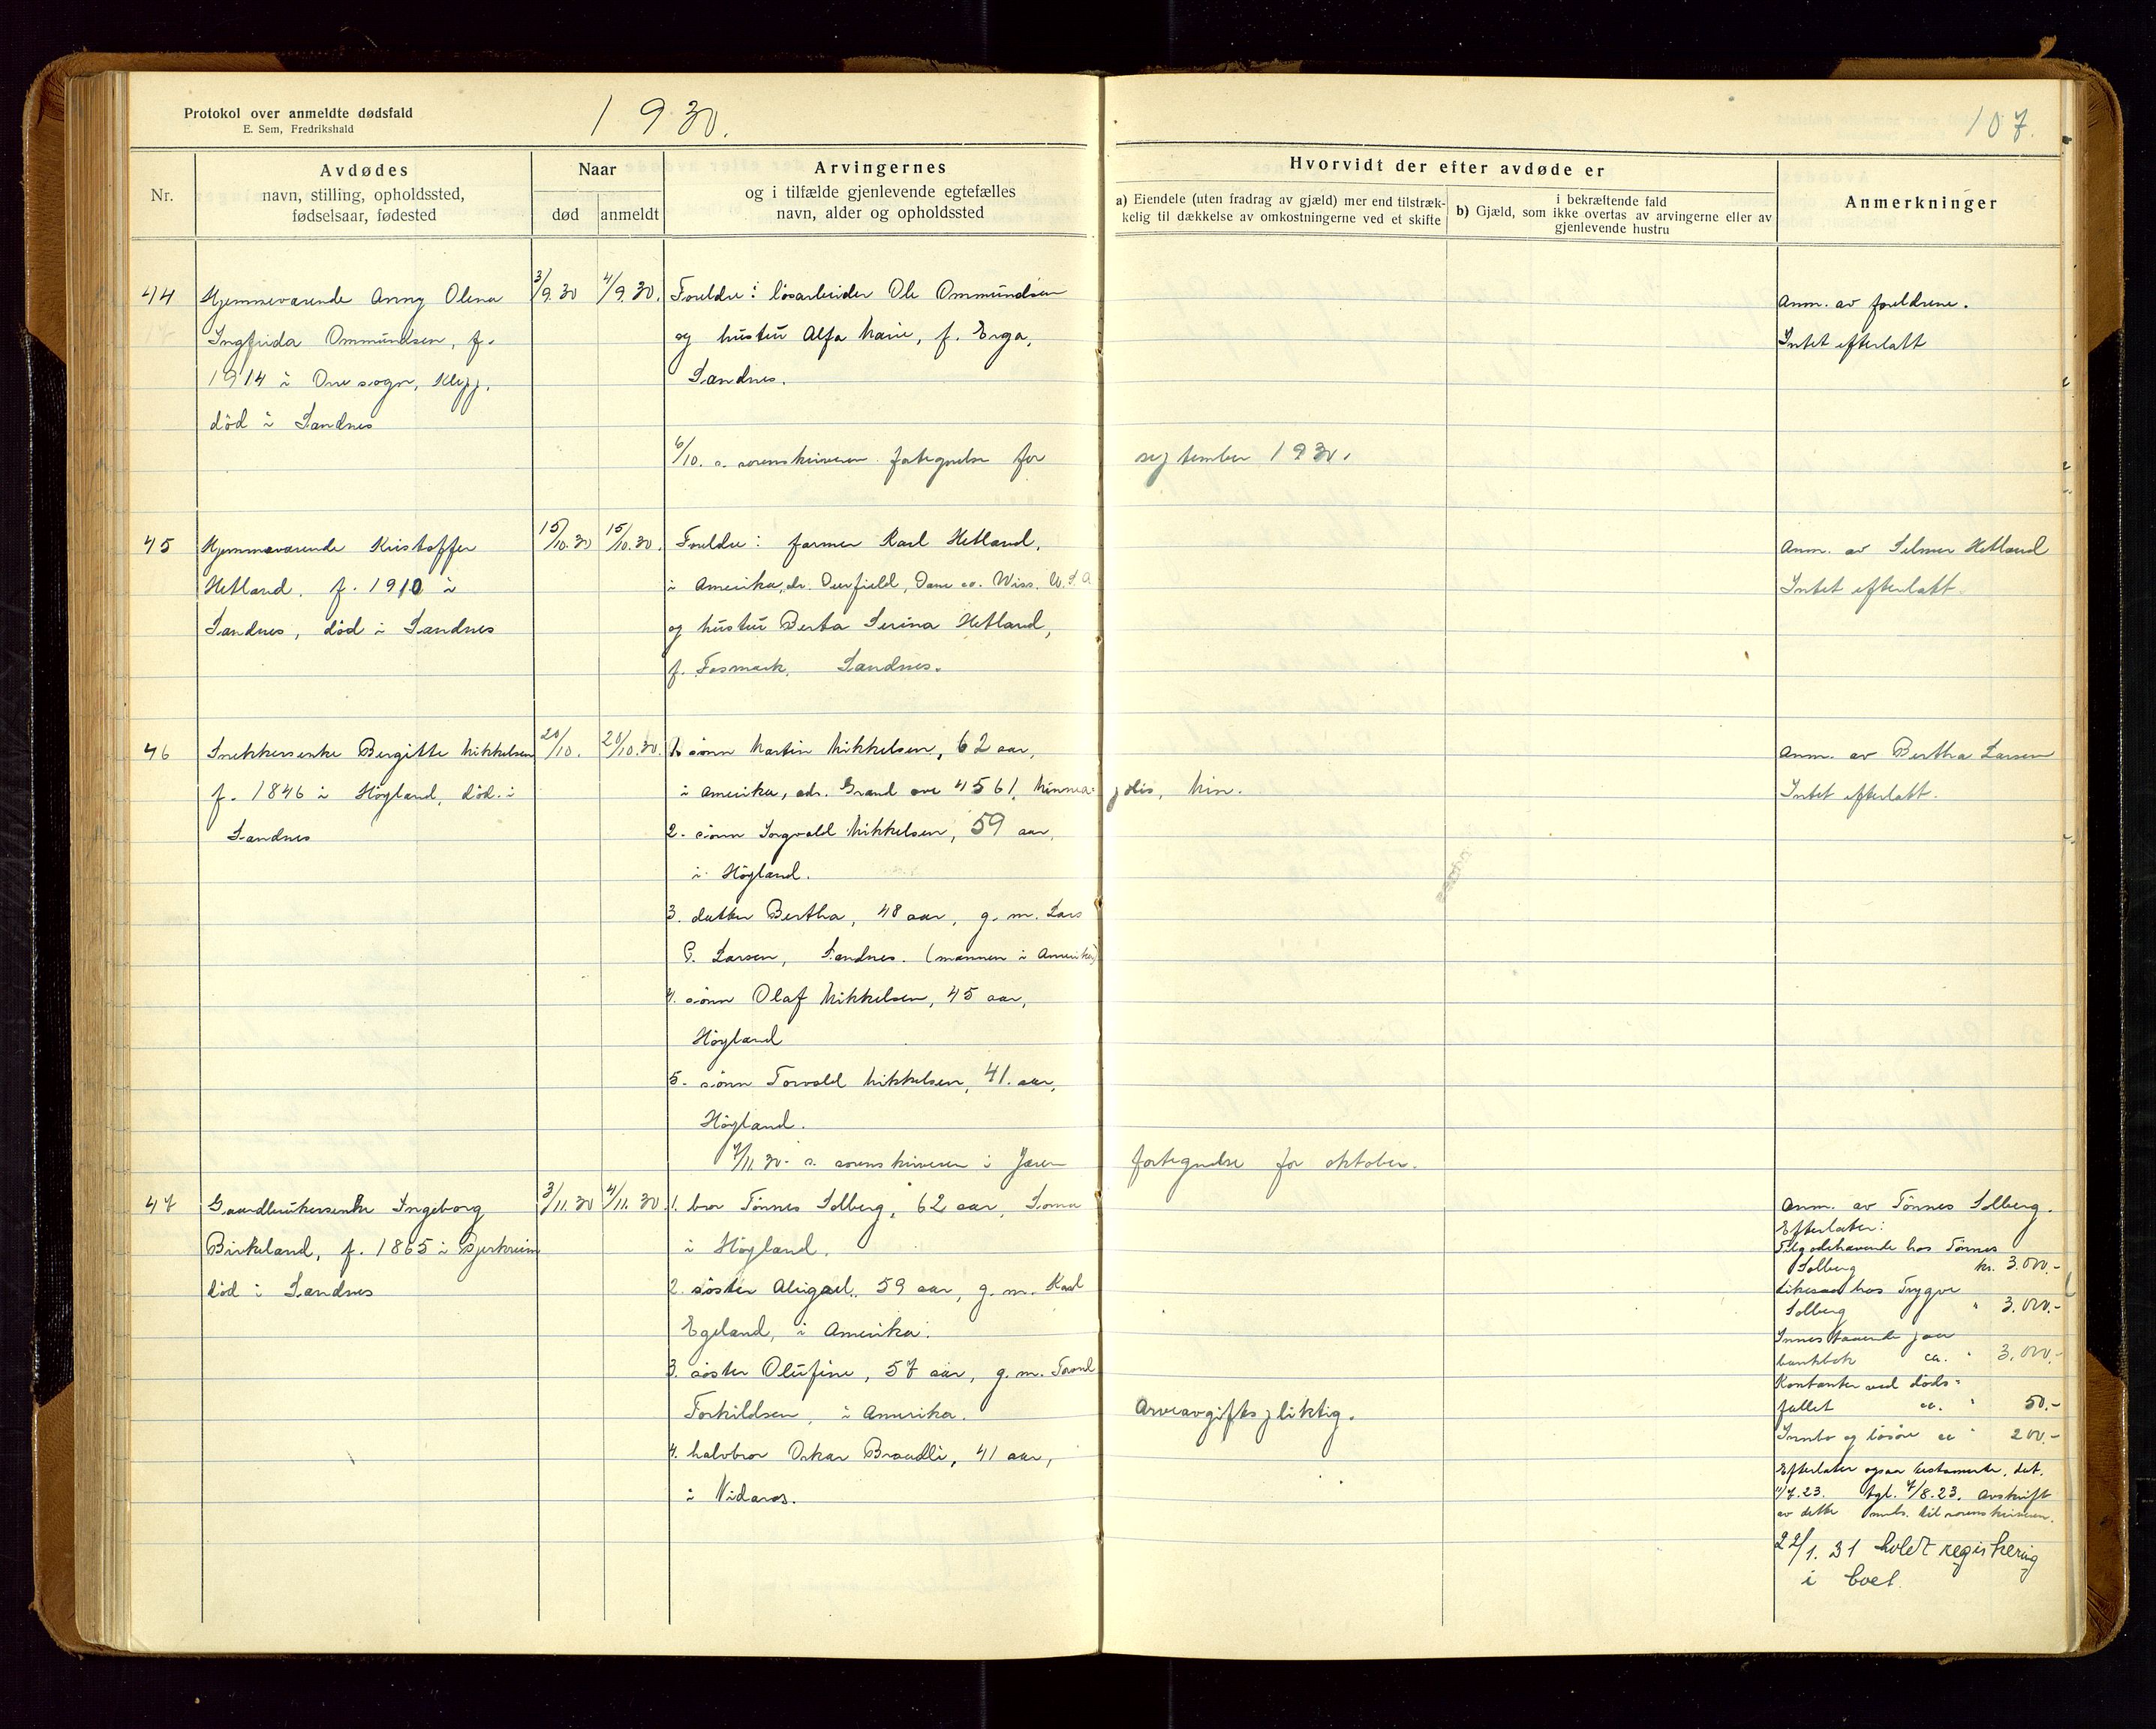 Protokol over anmeldte dødsfald
E. Sem, Fredrikshald
1930.
107.
Nr.
Avdødes
navn, stilling, opholdssted,
fødselsaar, fødested
Naar
død
anmeldt
Arvingernes
og i tilfælde gjenlevende egtefælles
navn, alder og opholdssted
Hvorvidt der efter avdøde er
a) Eiendele (uten fradrag av gjæld) mer end tilstræk-
kelig til dækkelse av omkostningerne ved et skifte
i bekræftende fald
b) Gjæld, som ikke overtas av arvingerne eller av
gjenlevende hustru
Anmerkninger
44
Hjemmeværende Anny Olena
Ingfrida Ommundsen, f.
1914 i Orre sogn, Klepp,
død i Sandnes
3/9.30
4/9.30.
Foreldre: løsarbeider Ole Ommundsen
og hustru Alfa Marie, f. Erga,
Sandnes.
Anm. av foreldrene.
Intet efterlatt
6/10. s. sorenskriveren fortegnelse for september 1930.
45
Hjemmeværende Kristoffer
Hetland, f. 1910 i
Sandnes, død i Sandnes
15/10.30
15/10.30.
Foreldre: farmer Karl Hetland,
i Amerika, adr. Deerfield, Dane co. Wiss. U.S.A
og hustru Berta Serina Hetland,
f. Fosmark, Sandnes.
Anm. av Selmer Hetland
Intet efterlatt.
46
Snekkerenke Bergitte Mikkelsen
f. 1846 i Høyland, død i
Sandnes
20/10.
20/10.30.
1. sønn Martin Mikkelsen, 62 aar,
i Amerika, adr. Grand ave 4561, Minnea-polis, Min.
2. sønn Torgvald Mikkelsen, 59 aar,
i Høyland.
3. datter Bertha, 48 aar, g. m. Lars
P. Larsen, Sandnes. (mannen i Amerika)
4. sønn Olaf Mikkelsen, 45 aar,
Høyland
5. sønn Torvald Mikkelsen, 41 aar,
Høyland.
Anm. av Bertha Larsen
Intet efterlatt.
4/11.30. s. sorenskriveren i Jæren fortegnelse for oktober.
47
Gaardbrukerenke Ingeborg
Birkeland, f. 1865 i Bjerkreim
død i Sandnes
3/11.30
4/11.30
1. bror Tønnes Solberg, 62 aar, Soma
i Høyland.
2. søster Abigael, 59 aar, g. m. Karl
Egeland, i Amerika.
3. søster Olufine, 57 aar, g. m. Tarand
Torkildsen, i Amerika.
4. halvbror Oskar Braadli, 41 aar,
i Nidaros.
Arveavgiftspliktig.
Anm. av Tønnes Solberg.
Efterlater:
Tilgodehavende hos Tønnes
Solberg kr. 3.000.-
Likesaa hos Trygve
Solberg " 3.000.-
Innestaaende paa
bankbok ca. " 3.000.-
Kontanter ved døds-
fallet ca. " 50.-
Innbo og løsøre ca " 200.-
Efterlater ogsaa testamente, dat.
11/7.23. tgl. 4/8.23. Avskrift
av dette sendt til sorenskriveren.
22/1.31 holdt registering
i boet.